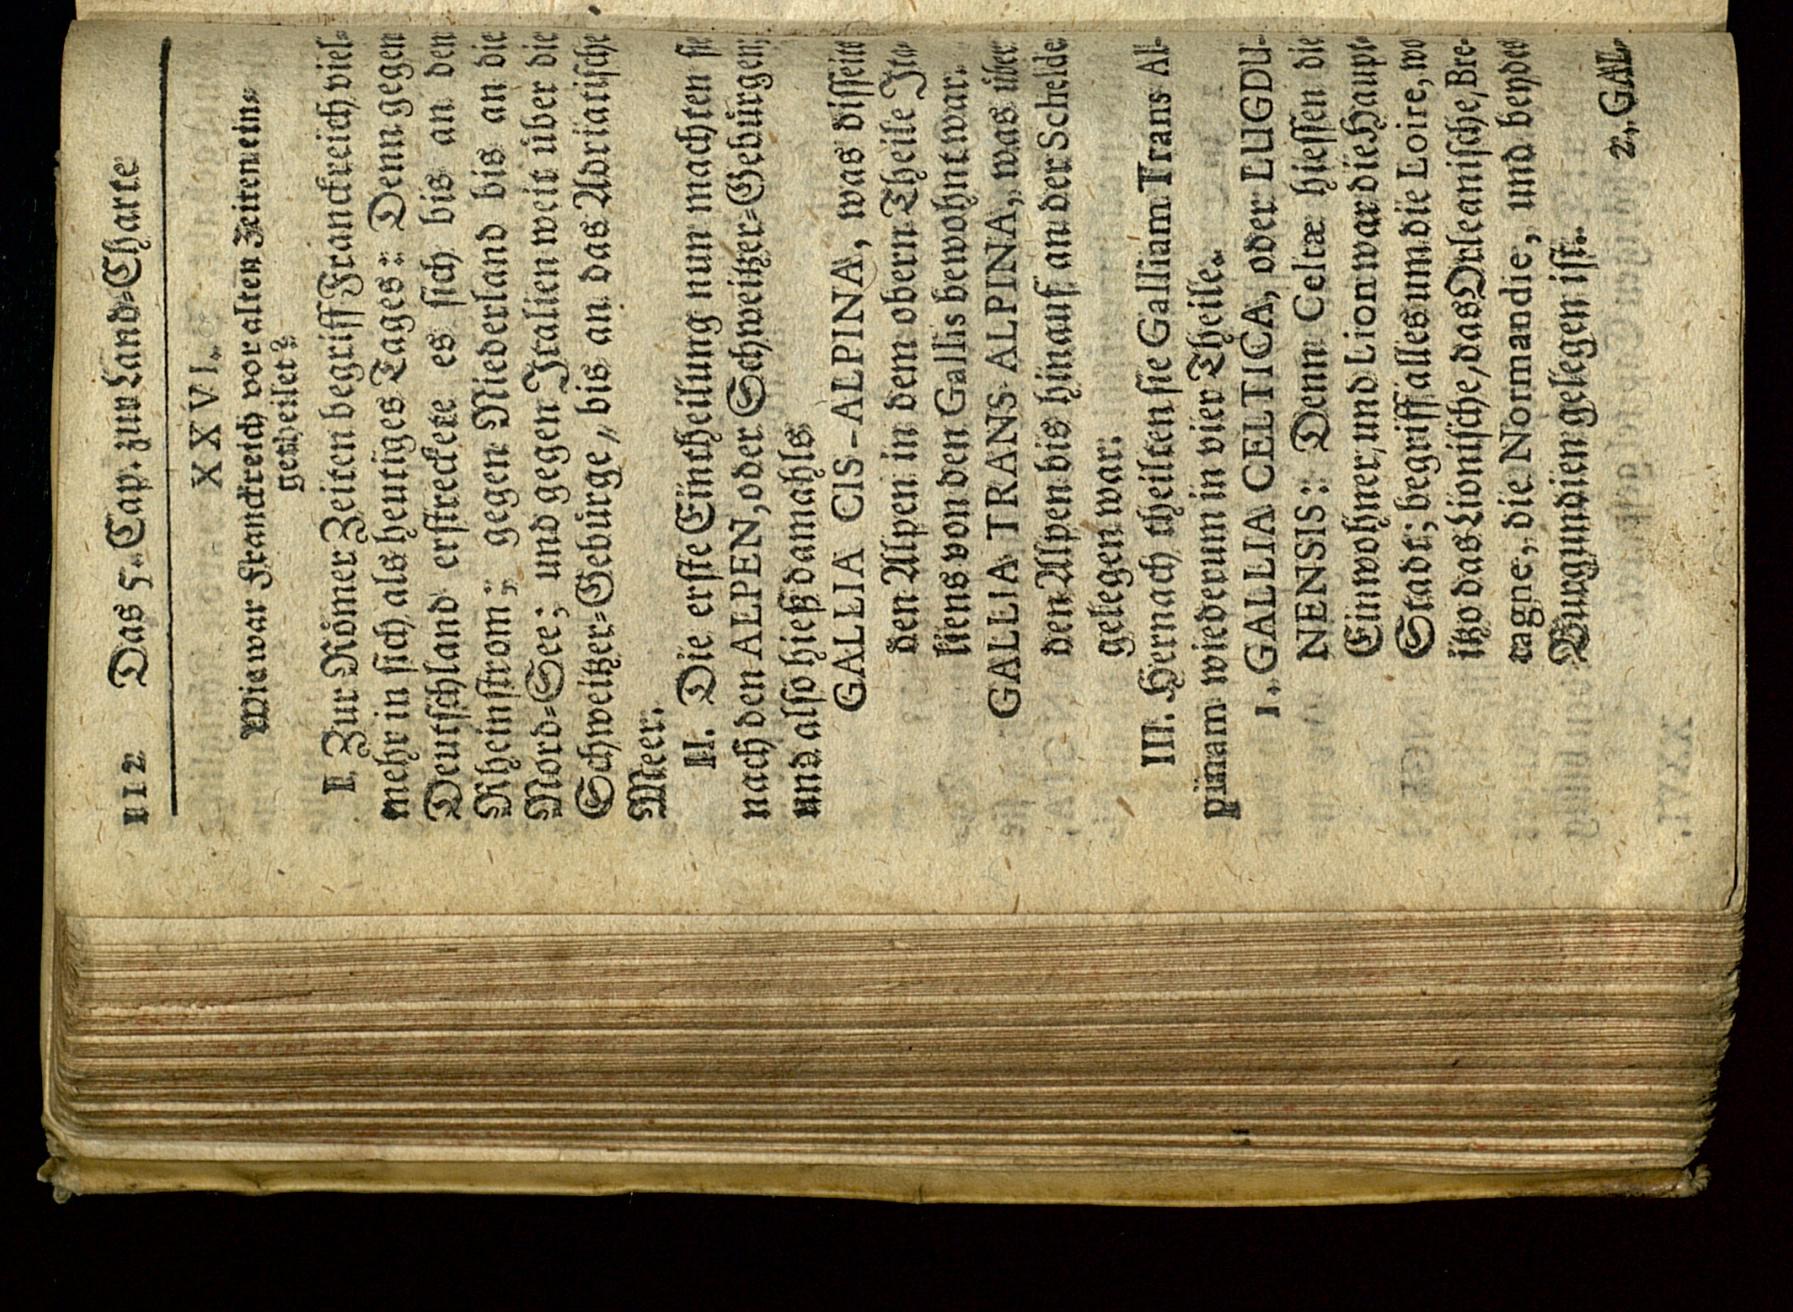 112 Das 5. Cap. zur Land-Charte
XXVI.
Wie war Franckreich vor alten Zeiten eingetheilet?
I. Zur Römer Zeiten begriff Franckreich viel-
mehr in sich, als heutiges Tages: Denn gegen
Deutschland erstreckete es sich bis an den
Rheinstrom; gegen Niederland bis an die
Nord-See; und gegen Italien weit über die
Schweitzer-Gebürge, bis an das Adriatische
Meer.
II. Die erste Eintheilung nun machten sie
nach den ALPEN, oder Schweitzer-Gebürgen;
und also hieß damahls
GALLIA CIS-ALPINA, was disseit
den Alpen in dem obern Theile Ita-
liens von den Gallis bewohnt war.
GALLIA TRANS-ALPINA, was über
den Alpen bis hinauf an der Schelde
gelegen war.
III. Hernach theilten sie Galliam Trans Al-
pinam wiederum in vier Theile.
1. GALLIA CELTICA, oder LUGDU-
NENSIS: Denn Celtæ hiessen die
Einwohner, und Lion war die Haupt-
Stadt; begriff alles um die Loire, wo
itzo das Lionische, das Orleanische, Bre-
tagne, die Normandie, und beydes
Burgundien gelegen ist.
2. GAL-